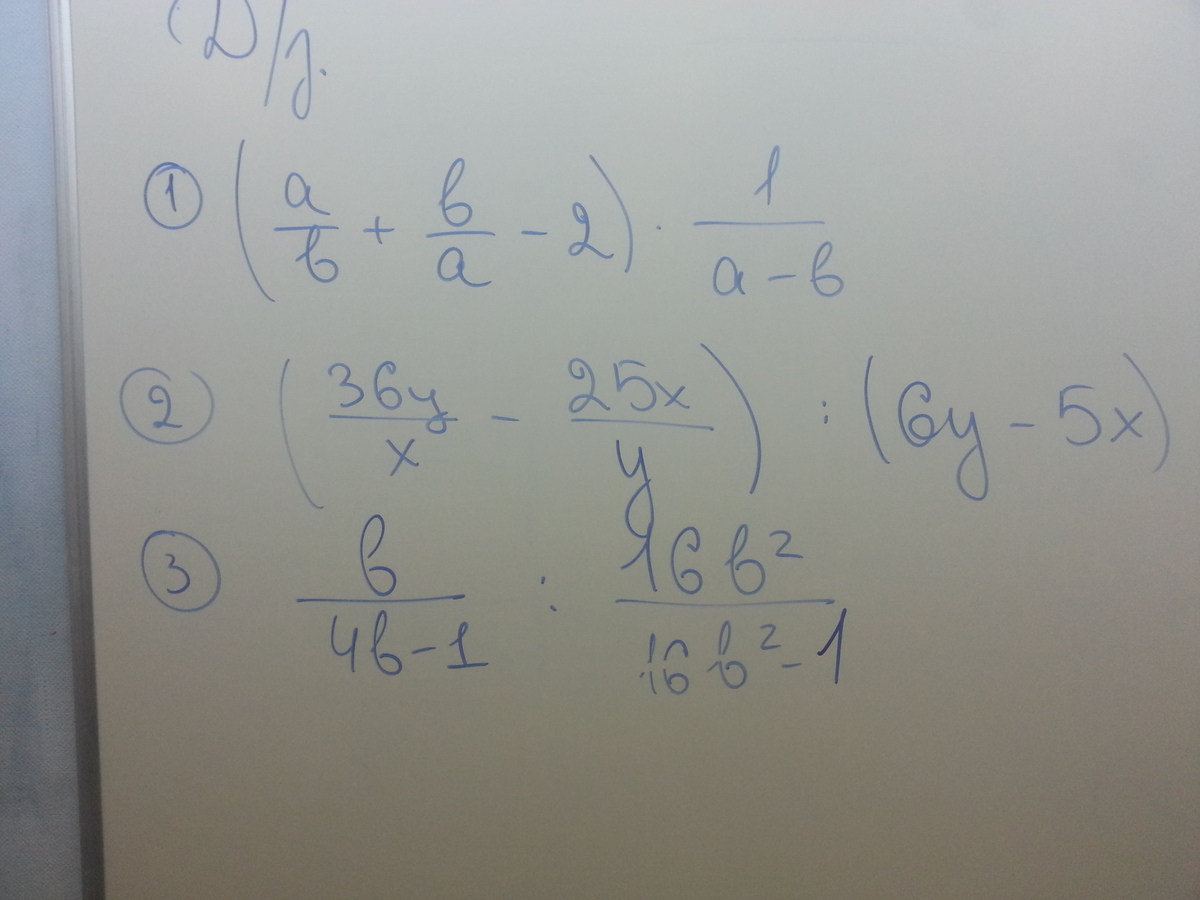 Д/з.
① (a/b + b/a - 2) · 1/(a-b)
② (36y/x - 25x/y) : (6y - 5x)
③ b/(4b-1) : 16b²/(16b²-1)